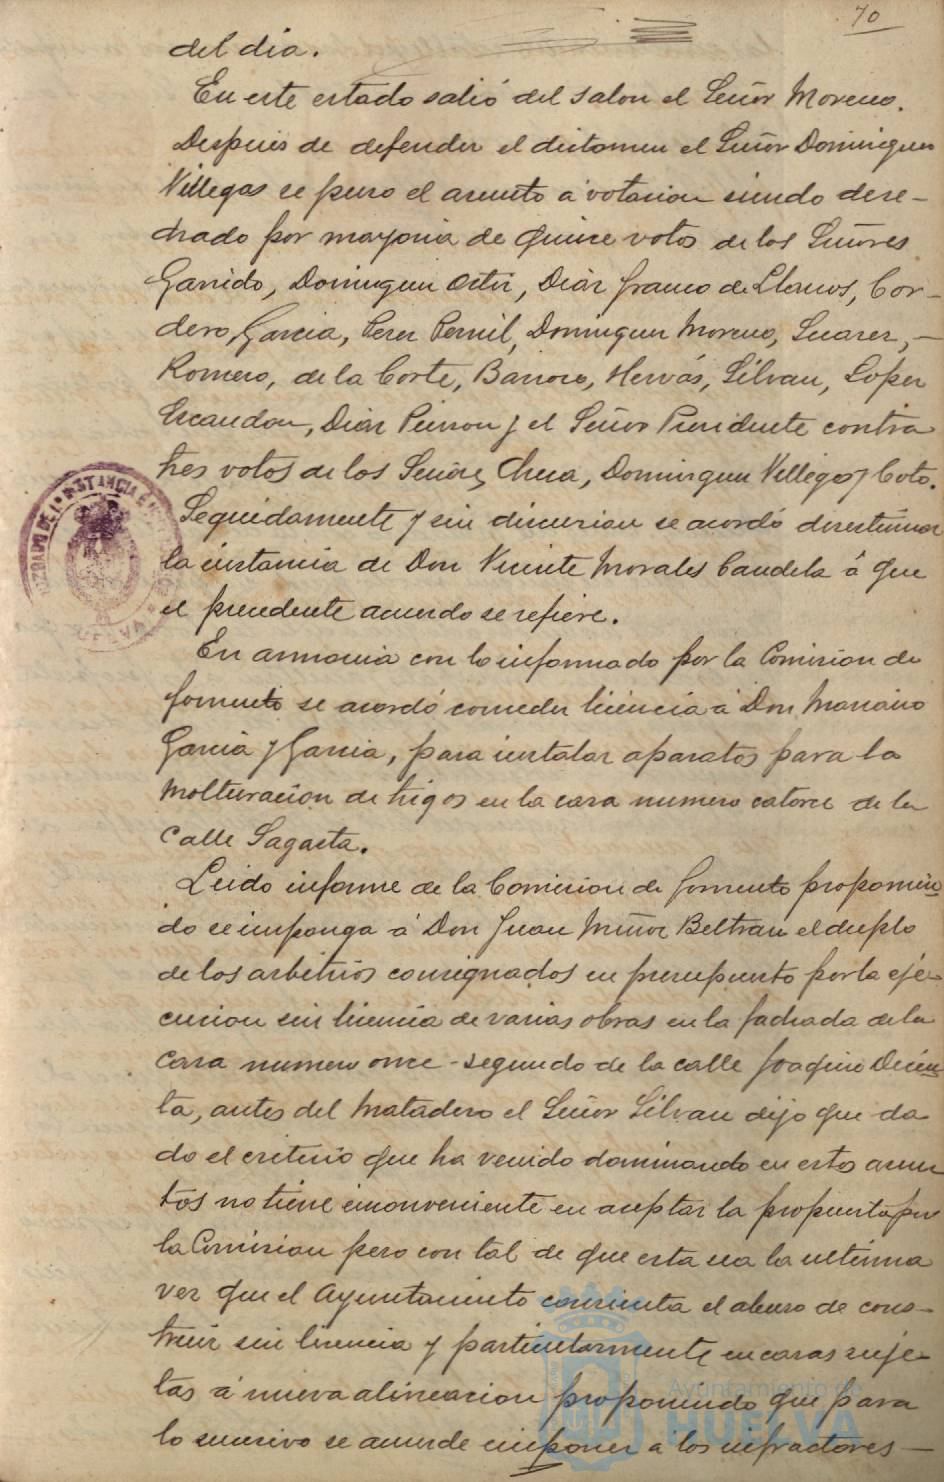 70
del dia.
En este estado salió del salon el Señor Moreno.
Después de defender el dictamen el Señor Dominguez
Villegas se puso el asunto á votacion siendo dese-
chado por mayoria de quince votos de los Señores
Garrido, Dominguez Ortiz, Diaz Franco de Llanos, Cor-
dero, Garcia, Perez Pernil, Dominguez Moreno, Suarez, -
Romero, de la Corte, Barroso, Hervás, Silvan, López
Escandon, Diaz Pinzon y el Señor Presidente contra
tres votos de los Señores Checa, Dominguez Villegas y Coto.
Seguidamente y sin discusion se acordó desestimar
la instancia de Don Vicente Morales Candela á que
el precedente acuerdo se refiere.
En armonia con lo informado por la Comision de
fomento se acordó conceder licencia á Don Mariano
Garcia y Garcia, para instalar aparatos para la
molturacion de trigos en la casa numero catorce de la
calle Sagasta.
Leido informe de la Comision de fomento proponien
do se imponga á Don Juan Muñoz Beltran el duplo
de los arbitrios consignados en presupuesto por la eje-
cucion sin licencia de varias obras en la fachada de la
casa numero once-segundo de la calle Joaquin Dicen
ta, antes del Matadero el Señor Silvan dijo que da
do el criterio que ha venido dominando en estos asun
tos no tiene inconveniente en aceptar la propuesta por
la Comision pero con tal de que esta sea la ultima
vez que el Ayuntamiento consienta el abuso de cons-
truir sin licencia y particularmente en casas suje-
tas á nueva alineacion proponiendo que para
lo sucesivo se acuerde imponer a los infractores -
JUZGADO DE 1ª INSTANCIA
Ayuntamiento de
HUELVA